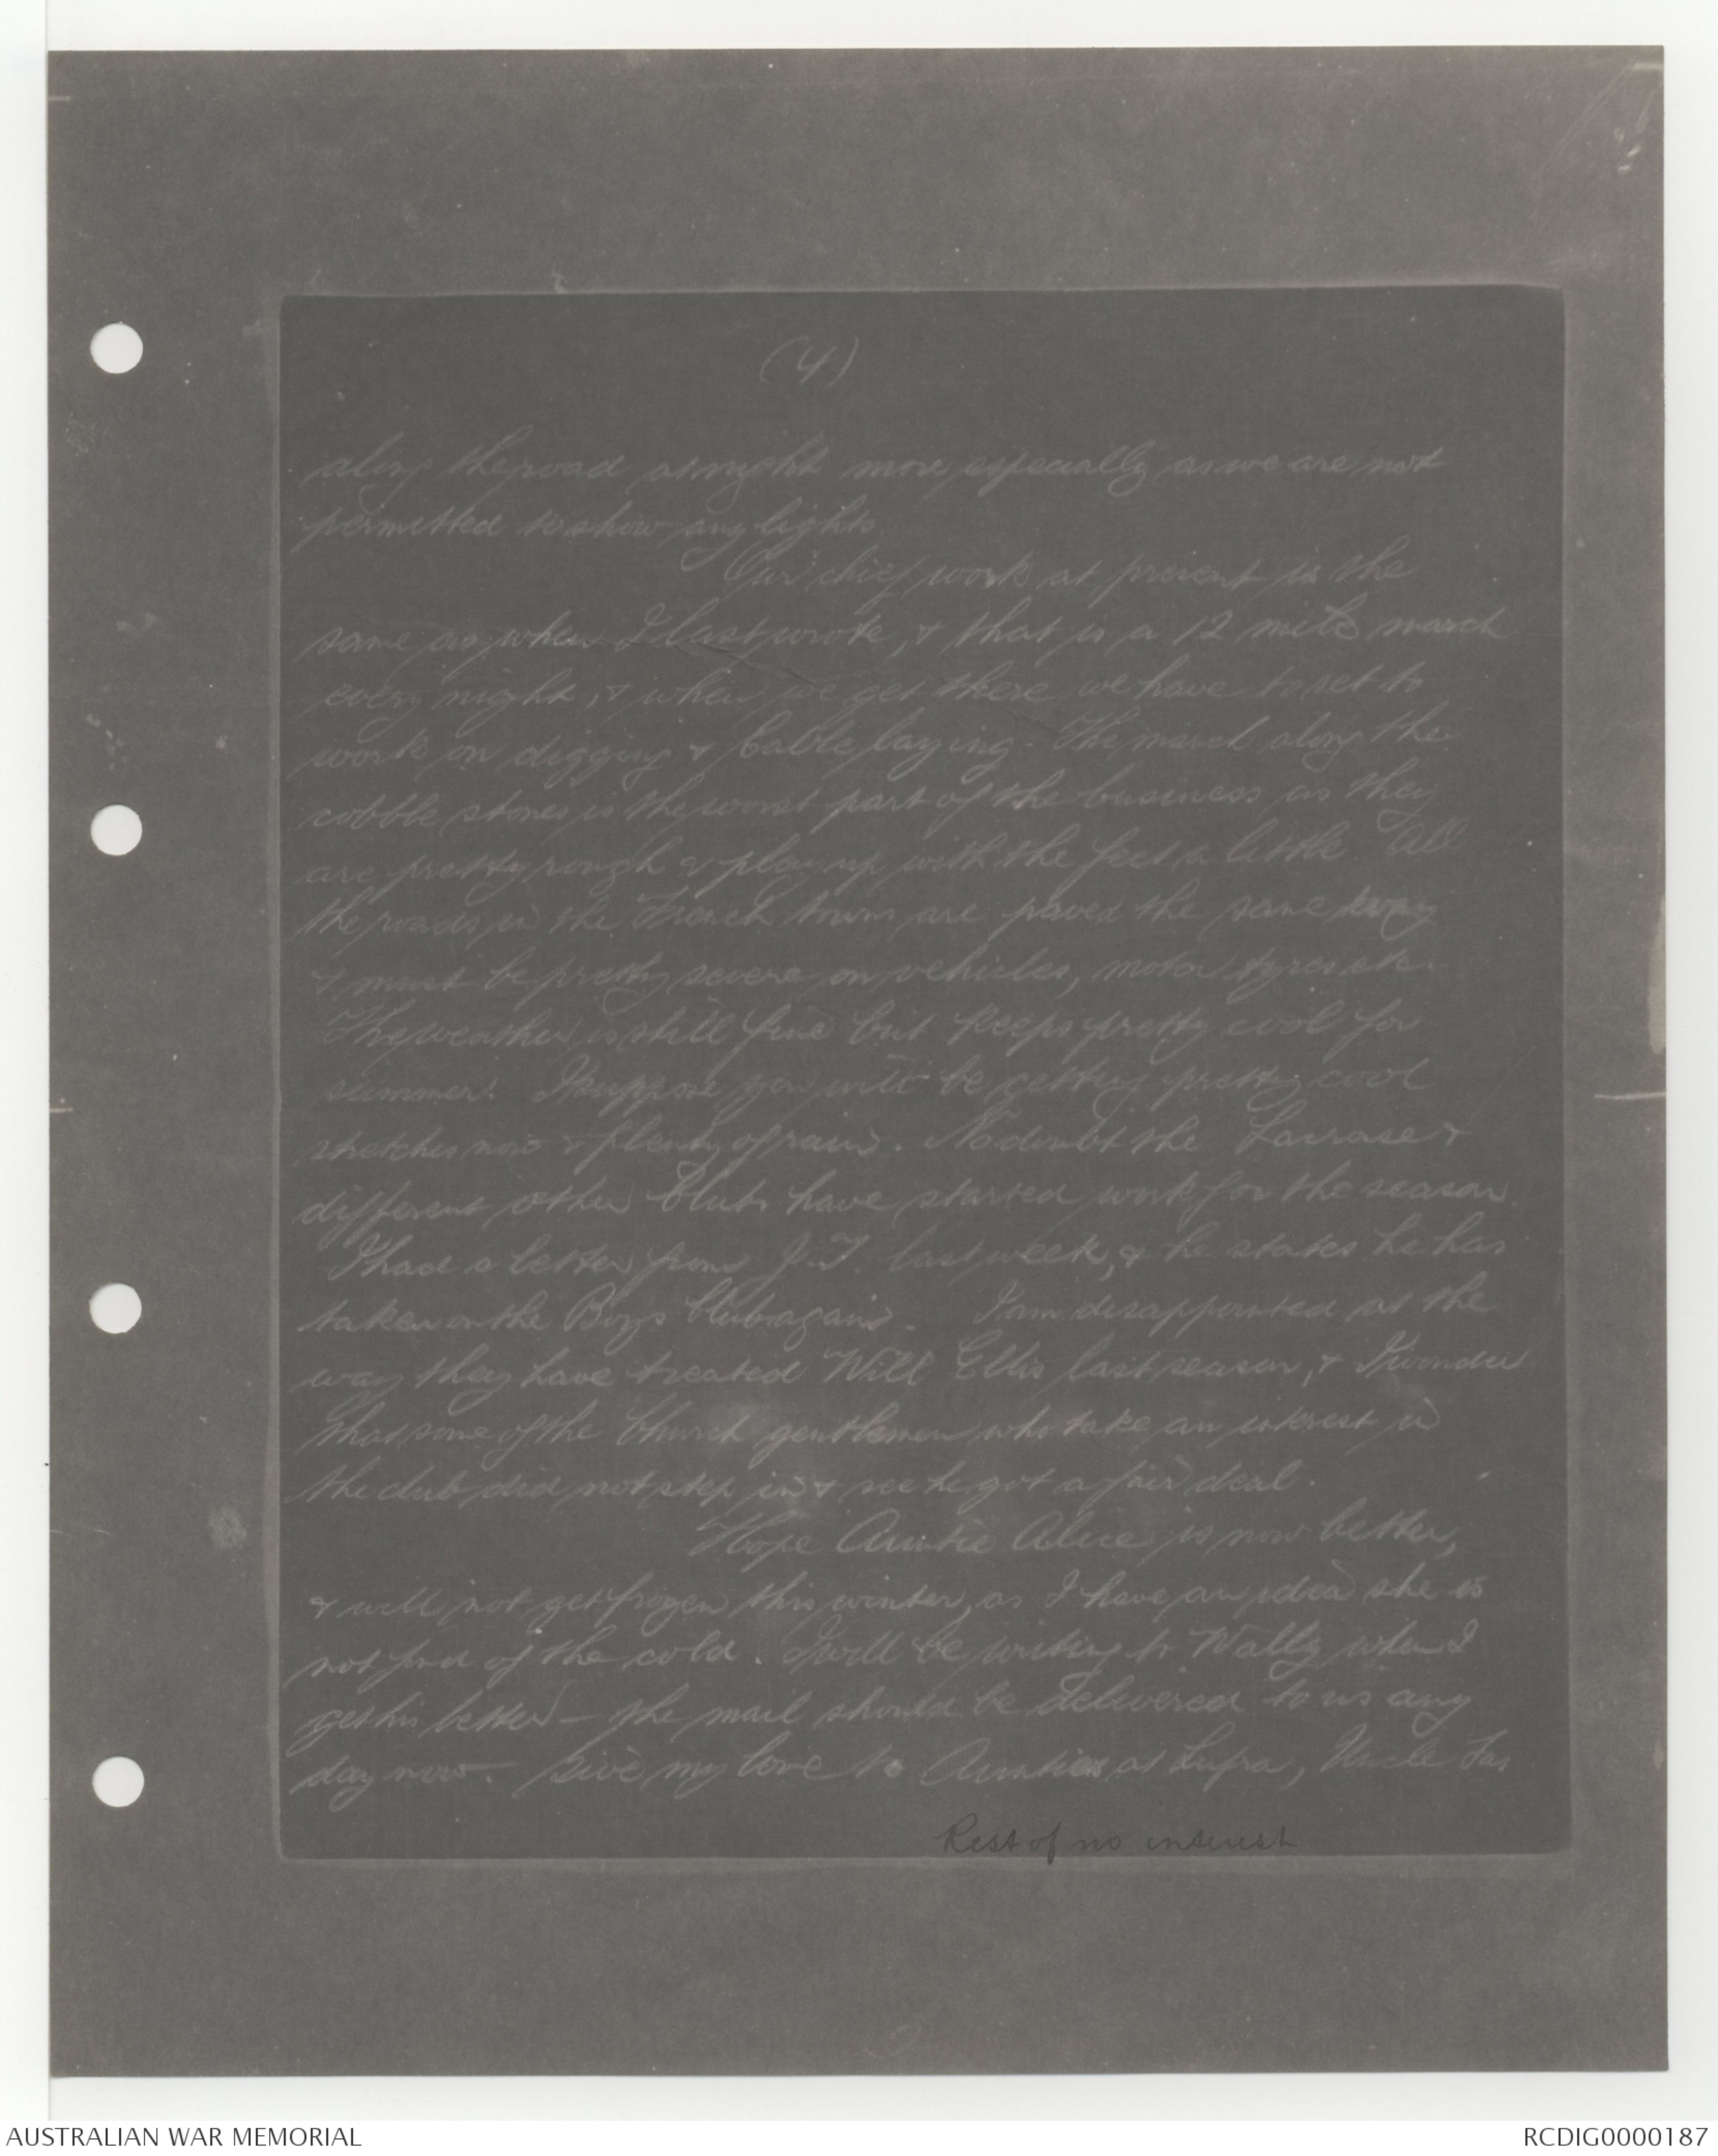 (4)
along the road at night more especially as we are not
permitted to show any lights
Our chief work at present is the
same as when I last wrote, & that is a 12 mile march
every night, & when we get there we have to set to
work on digging & Cable laying. The march along the
cobble stones is the worst part of the business as they
are pretty rough & play up with the feet a little. All
the roads in the French towns are paved the same way
& must be pretty severe on vehicles, motor tyres etc.
The weather is still fine but keeps pretty cool for
summer. I suppose you will be getting pretty cool
stretches now & plenty of rain. No doubt the Lacrosse &
different other Clubs have started work for the season.
I had a letter from J.T. last week, & he states he has
taken on the Boys Club again. I am disappointed at the
way they have treated Will Ellis last season, & I wonder
that some of the Church gentlemen who take an interest in
the club did not step in & see he got a fair deal.
Hope Auntie Alice is now better,
& will not get frozen this winter, as I have an idea she is
not fond of the cold. I will be writing to Wally when I
get his letter - the mail should be delivered to us any
day now. Give my love to Aunties at Lupra, Uncle Jas
Rest of no interest
AUSTRALIAN WAR MEMORIAL
RCDIG0000187